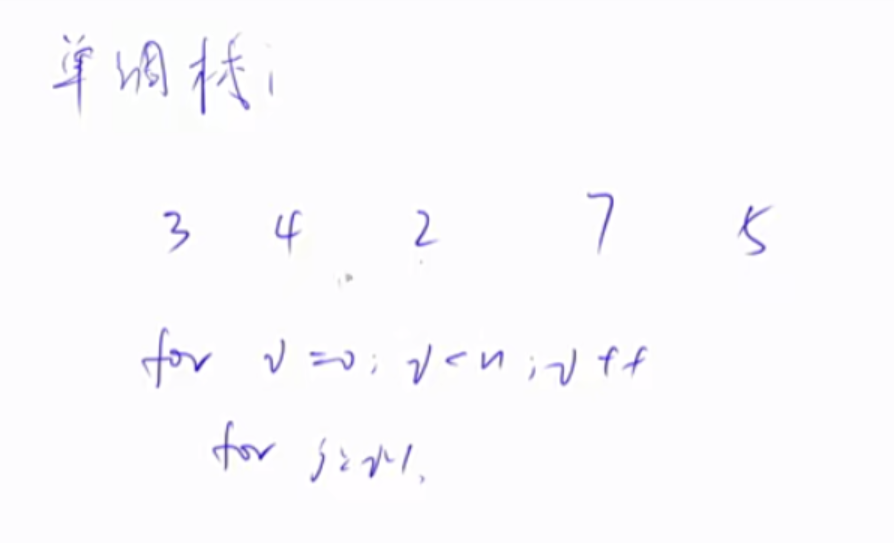 单调栈：
3 4 2 7 5
for i=0; i<n; i++
for j=i-1,